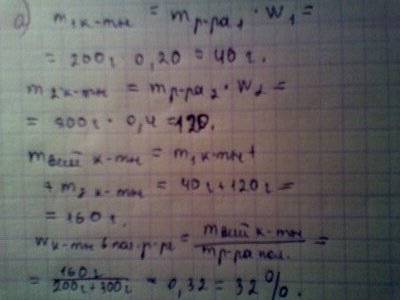 а) m₁ к-ты = mр-ра₁ · W₁ =
= 200г · 0,20 = 40 г.
m₂ к-ты = mр-ра₂ · W₂ =
= 300г · 0,4 = 120.
к-ты = m₁ к-ты +
+ m₂ к-ты = 40г + 120г =
= 160 г.
Wк-ты в пол. р-ре = к-ты / mр-ра пол. =
= 160 г / 200г + 300г = 0,32 = 32 %.